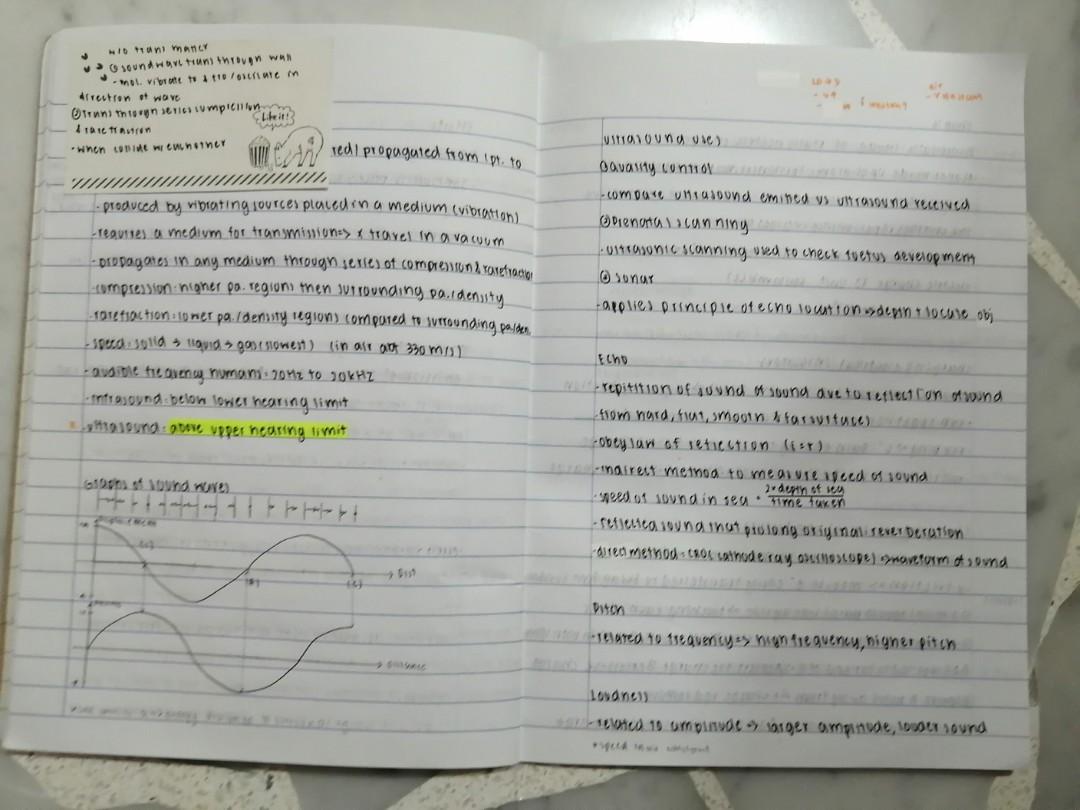 w/o trans matter
①soundwave trans through wall
-mol. vibrate to & fro/oscilate in
direction of wave
②trans through series compression
& rarefraction
-when collide w/eachother
Like it!
red/propagated from 1pt. to
-produced by vibrating sources placed in a medium (vibration)
-requires a medium for transmission=> x travel in a vacuum
-propagates in any medium through series of compression & rarefraction
-compression:higher pa. regions then surrounding pa./density
-rarefraction:lower pa./density regions compared to surrounding pa/den.
-speed: solid → liquid → gas(slowest) (in air abt 330 m/s)
-audible frequency humans:20Hz to 20kHz
-infrasound:below lower hearing limit
-ultrasound:above upper hearing limit
Graphs of sound waves
Displacement
Dist
Distance
ultrasound uses
①Quality control
-compare ultrasound emitted vs ultrasound received
②Prenatal scanning
-ultrasonic scanning used to check foetus development
③ sonar
-applies principle of echo location →depth + locate obj
Echo
-repitition of sound of sound due to reflection of sound
from hard, flat, smooth & far surfaces
-obey law of reflection (i=r)
-indirect method to measure speed of sound
-speed of sound in sea = 2×depth of sea
time taken
-reflected sound that prolong original:reverberation
-direct method:CRO( cathode ray oscilloscope) →waveform of sound
Pitch
-related to frequency=> high frequency, higher pitch
Loudness
-related to amplitude → larger amplitude, louder sound